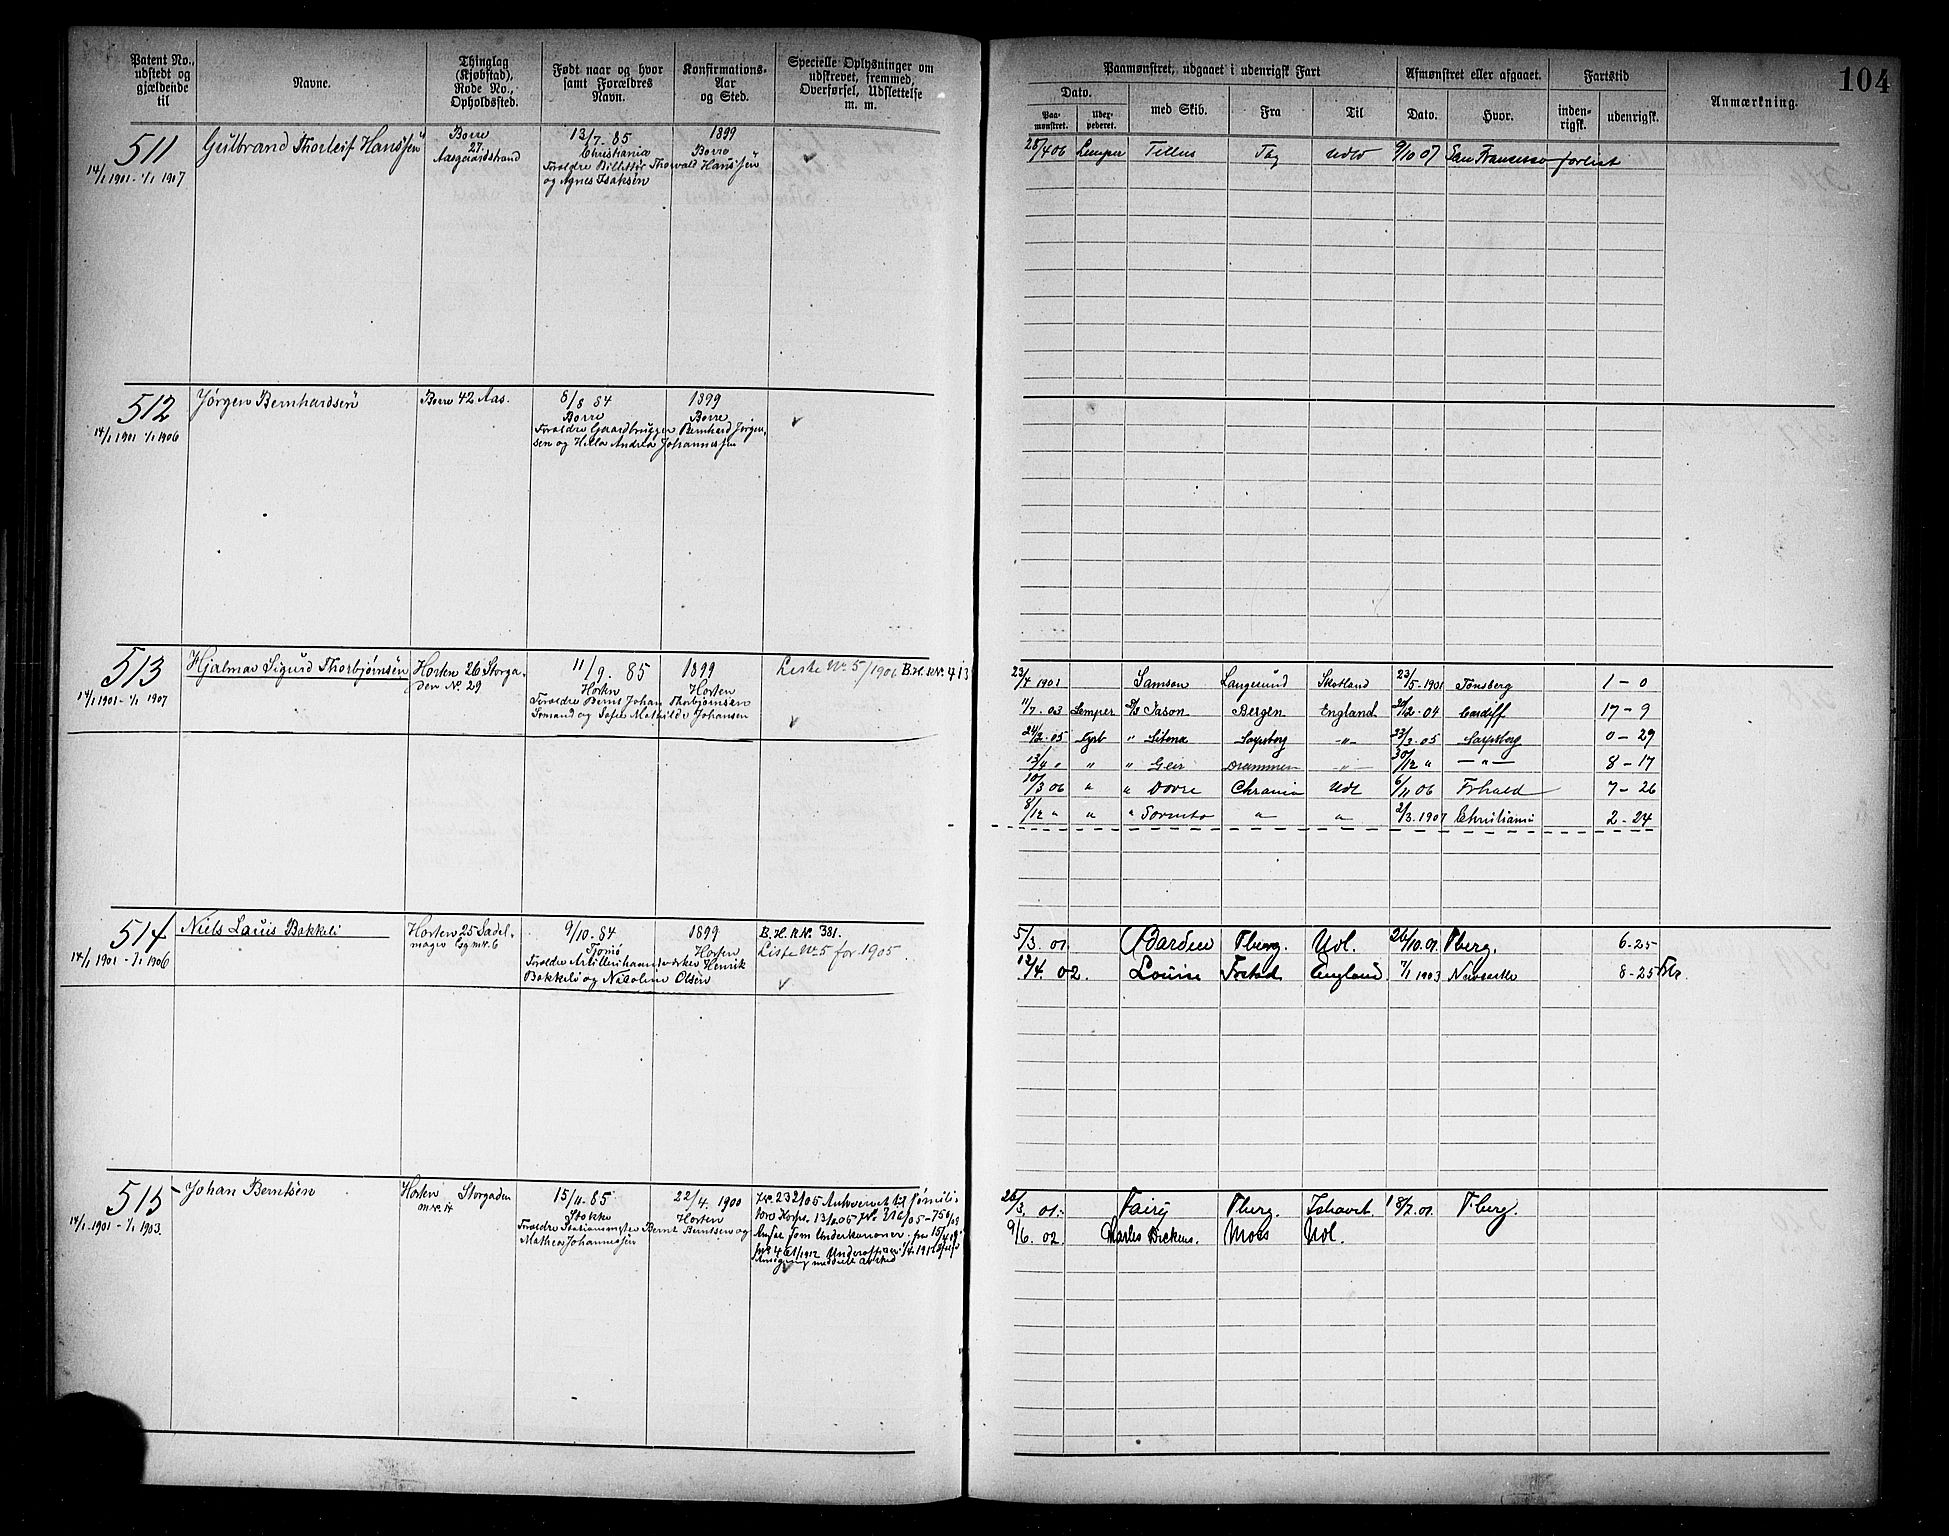 Patent No., udstedt og gjældende til
Navne.
Thinglag (Kjøbstad), Rode No., Opholdssted.
Født naar og hvor samt Forældres Navn.
Konfirmations-Aar og Sted.
Specielle Oplysninger om udskrevet, fremmed, Overførsel, Udslettelse m. m.
Paamønstret, udgaaet i udenrigsk Fart
Dato.
Paamønstret.
Uderpederet.
med Skib.
Fra
Til
Afmønstret eller afgaaet.
Dato.
Hvor.
Fartstid
indenrigsk.
udenrigsk.
Anmærkning.
104
511
14/1 1901 - 1/1 1907
Gulbrand Thorleif Hanssen
Borre
27.
Aasgaardstrand
13/7. 85
Christiania
Foraldre Thorvald Hanssen
og Agnes Isaksen
1899
Borre
28/4 06 Lemper Tellus Tbg Udld 9/10 07 San Fransisco forlist
512
14/1 1901 1/1 1906
Jørgen Bernhardsen
Borre 42 Aas.
8/8 84
Borre
Foraldre Gaardbruger Bernhard Jørgen-
sen og Hella Andrea Johannessen
1899
Borre
513
14/1 1901 - 1/1 1907
Hjalmar Sigurd Thorbjørnsen
Horten 26 Storga-
den No. 29
11/9. 85
Horten
Foraldre Bernt Johan Thorbjørnsen
Sømand og Sofie Mathilde Johansen
1899
Horten
Liste No 5/1906 B.H.R.Nr. 413
23/4 1901 Samson Langesund Skotland 23/5. 1901 Tønsberg 1 - 0
11/7. 03 Lemper Jason Bergen England 04 Cardiff 17 - 9
24/2. 05 Fyrb " Sarpsborg -"- 23/3. 05 Sarpsborg 0 - 29
13/4 " " " Geir Drammen -"- 30/12 " -"- 8 - 17
10/3 06 " " Dovre Chrania Udl 6/11 06 Frhald 7 - 26
8/12 " " " Sorrento " " 2/3. 1907 Christiania 2 - 24
514
14/1 1901 - 1/1 1906
Niels Louis Bakkeli
Horten 25 Sadel-
mager
9/10. 84
Tjømø
Foraldre Henrik
Bakkeli og Nicoline Olsen
1899
Horten
B.H.R.Nr. 381.
Liste No 5 for 1905.
5/3. 01 Barden Tberg. Udl. 26/10. 01. Tberg. 6-25
12/4. 02. Louise Frstad England 7/1 1903 8-25
515
14/1. 1901 - 1/1 1903.
Johan Berntsen
Horten Storgaden
m.nr. 14
15/11. 85
Stokke
Foraldre Bernt Berntsen og
Mathea Johannessen
22/4. 1900
Horten
26/3. 01. Fairy Tberg. Ishavet 18/7. 01. Tberg.
9/6. 02. Charles Dickens. Moss Udl.